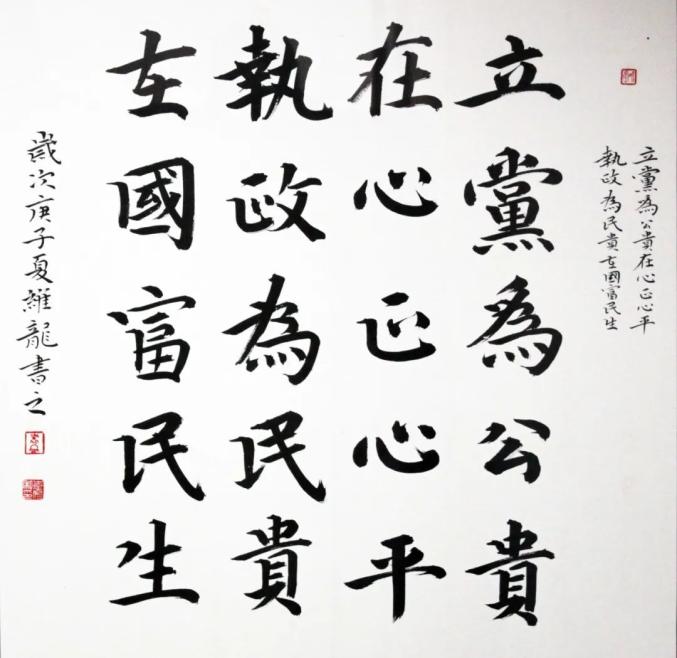 立黨為公貴在心正心平
執政為民貴在國富民生
立黨為公貴
在心正心平
執政為民貴
在國富民生
歲次庚子夏維龍書之